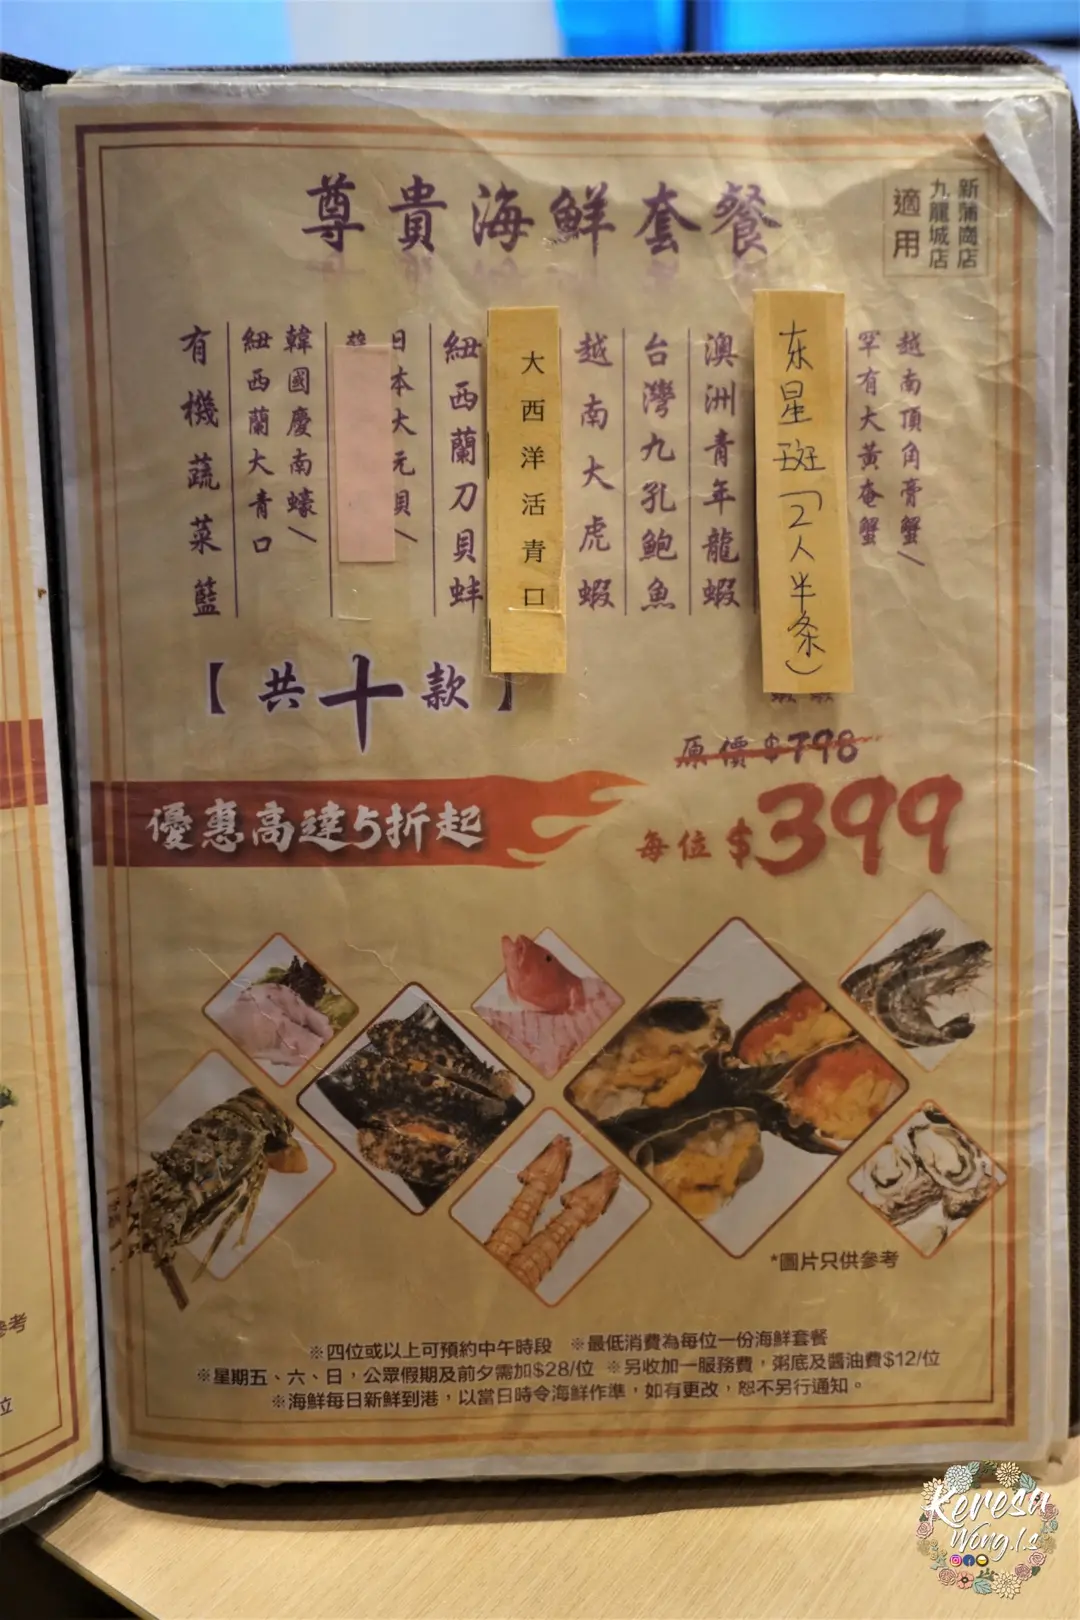 尊貴海鮮套餐
新蒲崗店
九龍城店
適用
越南頂角膏蟹/
罕有大黃奄蟹
东星斑(2人半条)
澳洲青年龍蝦
台灣九孔鮑魚
越南大虎蝦
大西洋活青口
紐西蘭刀貝蚌
日本大元貝/
韓國慶南蠔/
紐西蘭大青口
有機蔬菜籃
【共十款】
原價$798
優惠高達5折起
每位$399
*圖片只供參考
※四位或以上可預約中午時段 ※最低消費為每位一份海鮮套餐
※星期五、六、日,公眾假期及前夕需加$28/位 ※另收加一服務費,粥底及醬油費$12/位
※海鮮每日新鮮到港,以當日時令海鮮作準,如有更改,恕不另行通知。
參考
位
Keresa
Wong.l.s